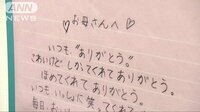 ANN NEWS
♡お母さんへ♡
いつも"ありがとう"。
こわいけどしかってくれてありがとう。
ほめてくれてありがとう。
いつもいっしょに笑ってくれて
毎日、お